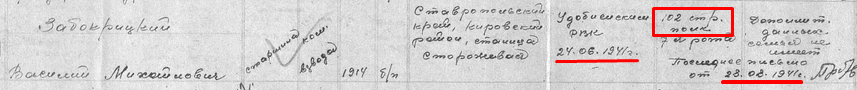 Забокрицкий
Василий Михайлович
старшина ком. взвода
1914 б/п
Ставропольский
край, Кировский
район, станица
Сторожевая
Удобненским
РВК
24.06.1941г.
102 стр.
полк
7 м рота
Дополнит.
данных
семья не
имеет
Последнее письмо
от 23.08.1941г.